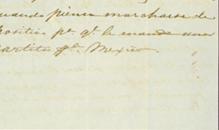 cuando piensa marcharse de
positivo pa. qe. le mande una
cartita pa. Mexico